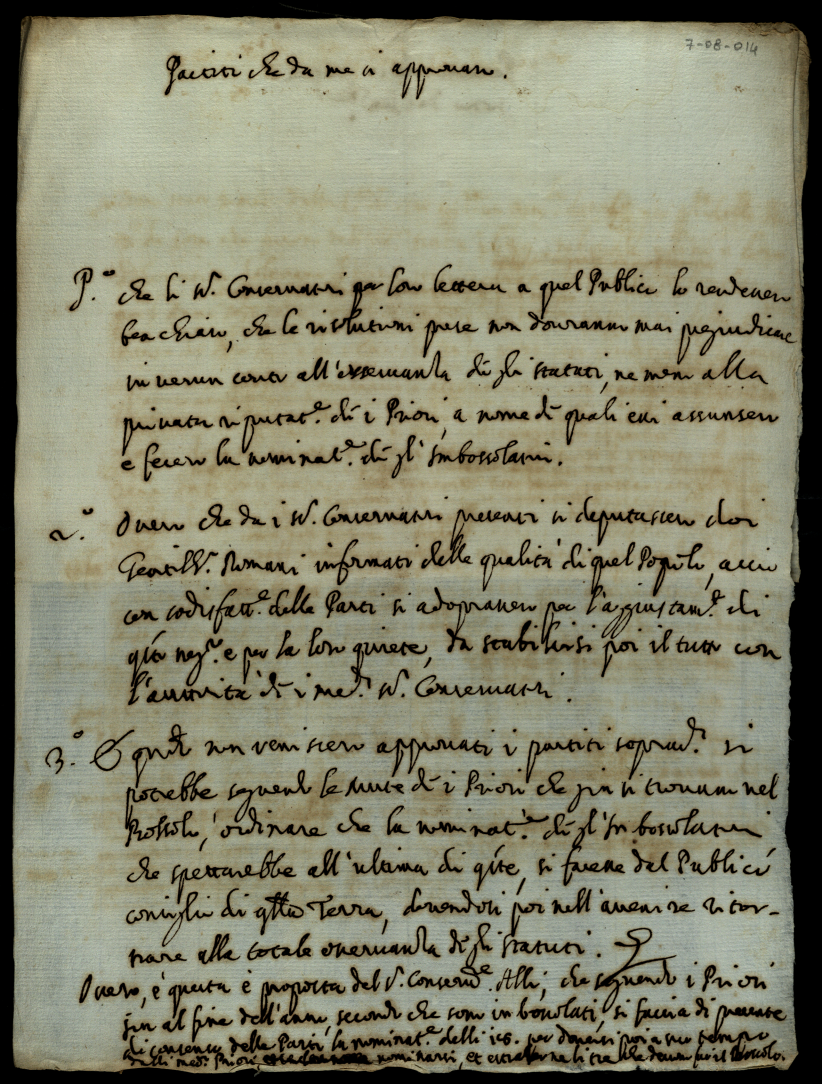 7-08-014
Partiti che da me si approvan.
P.º che li SS.ri Conservatori per loro lettera a quel Publico lo rendesser
ben chiaro, che le risolutioni prese non dovranno mai pregiudicare
in verun conto all'osservanza degli statuti, ne meno alla
privata riputat.e de i Priori, a nome de quali essi assunsero
e fecero la nominat.e degl'Imbossolatori.
2.º Overo che da i SS.ri Conservatori presenti si deputassero doi
Gentilh.ri Romani informati delle qualità di quel Popolo, acciò
con sodisfatt.e delle Parti si adoprassero per l'aggiustam.to di
q̃sto neg.o e per la loro quiete, da stabilirsi poi il tutto con
l'auttorità de i med.i SS.ri Conservatori.
3.º E quãdo non venissero approvati i partiti soprad.i si
potrebbe seguendo le Mute de i Priori che già si trovano nel
Bossolo, ordinare che la nominat.e degl'Imbossolatori
che spettarebbe all'ultima di q̃ste, si facesse dal Publico
consiglio di q̃lla Terra, dovendosi poi nell'avvenire ritor-
nare alla totale osservanza degli Statuti.
Overo, e questa è proposta del S. Conserv.e Alli, che seguendo i Priori
sin al fine dell'anno, secondo che sono imbossolati, si faccia di presente
di consenso delle Parti la nominat.e delli per doversi poi a suo tempo
dalli med.i Priori, nominarsi, et estraherne li tre che devono far il Bossolo.